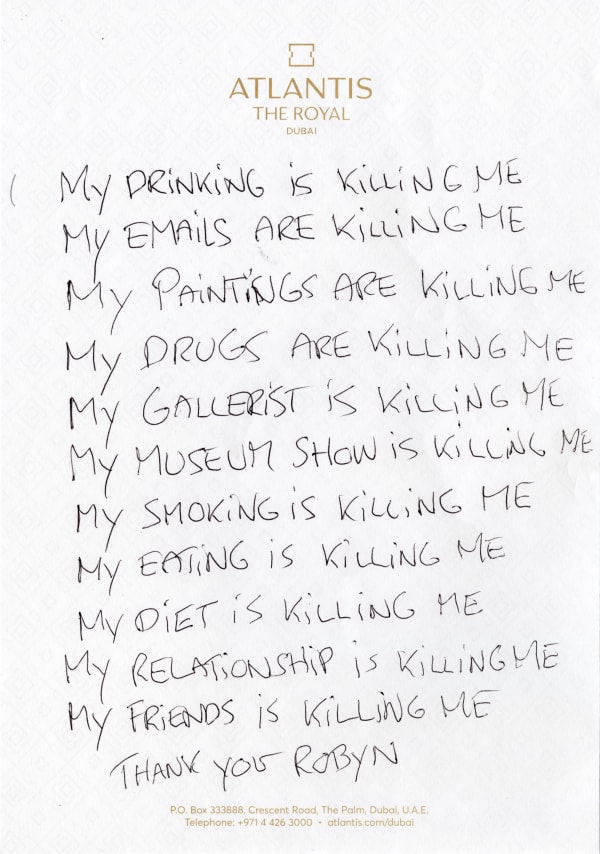 ATLANTIS
THE ROYAL
DUBAI
My DRiNKiNG is KiLLiNG ME
My EMAiLS ARE KiLLiNG ME
My PAiNTiNGS ARE KiLLiNG ME
My DRUGS ARE KiLLiNG ME
My GALLERiST iS KiLLiNG ME
My MUSEUM SHOW iS KiLLiNG ME
My SMOKiNG iS KiLLiNG ME
My EATiNG iS KiLLiNG ME
My DiET iS KiLLiNG ME
My RELATiONSHiP is KiLLiNG ME
My FRiENDS iS KiLLiNG ME
THANK yOU ROByN
P.O. Box 333888, Crescent Road, The Palm, Dubai, U.A.E.
Telephone: +971 4 426 3000 • atlantis.com/dubai